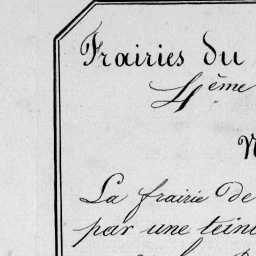 Frairies du
4ème
La frairie de
par une tein